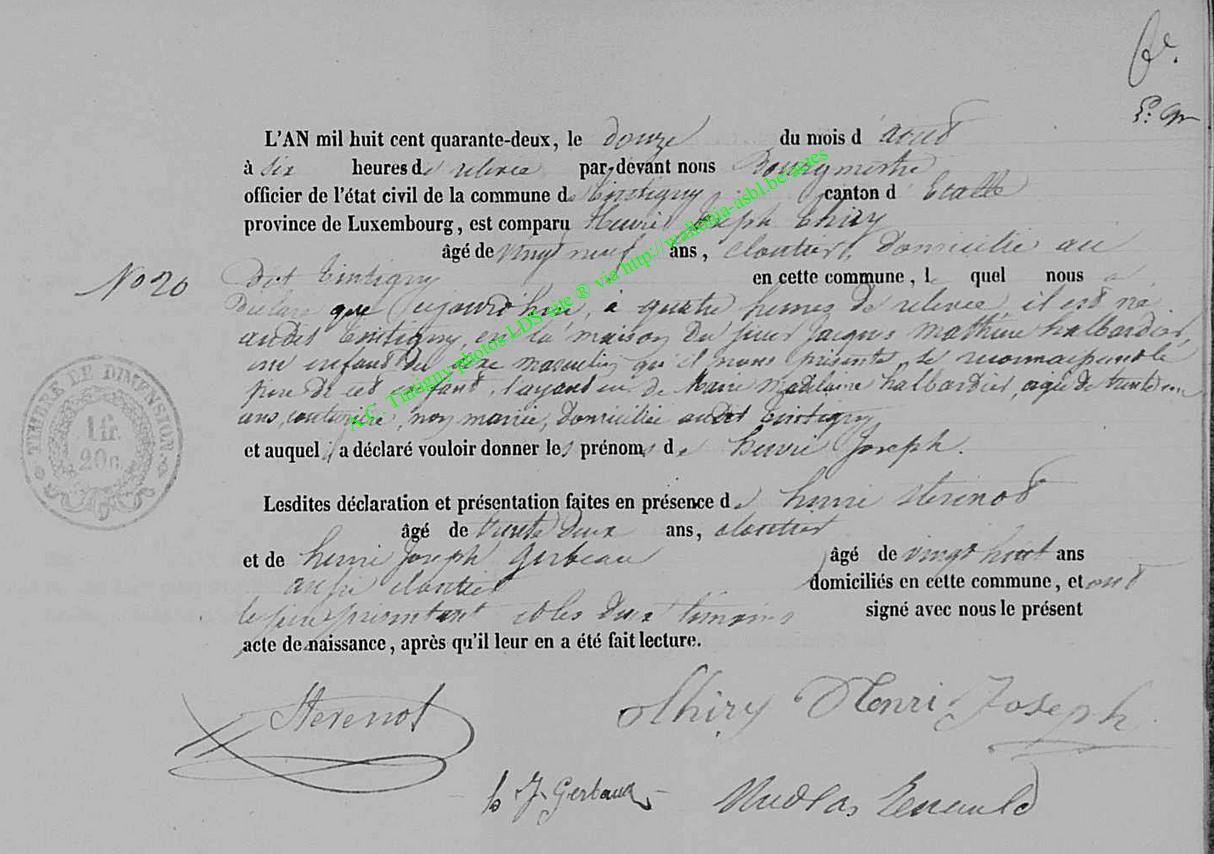 L'AN mil huit cent quarante-deux, le douze du mois d août
à six heures de relevée par-devant nous Bourgmestre
officier de l'état civil de la commune de Tintigny canton d Etalle
province de Luxembourg, est comparu Henri Joseph Thiry
âgé de vingt neuf ans, cloutier, domicilié au
No 20
dit Tintigny en cette commune, l quel nous a
déclaré que aujourd'hui, à quatre heures de relevée il est né
audit Tintigny, en la maison du sieur Jacques Mathieu halbardier,
un enfant du sexe masculin qu'il nous présente et reconnaissant le
père de cet enfant, l'ayant eu de Marie Madelaine halbardier, agée de trente
ans, couturière, non mariée, domiciliée audit Tintigny
et auquel il a déclaré vouloir donner les prénoms de henri Joseph.
Lesdites déclaration et présentation faites en présence de henri Sterenot
âgé de trente deux ans, cloutier
et de henri Joseph Gerbeau âgé de vingt huit ans
aussi cloutier domiciliés en cette commune, et ont
le père présentant et les deux témoins signé avec nous le présent
acte de naissance, après qu'il leur en a été fait lecture.
TIMBRE DE DIMENSION
1 fr.
20 c.
Sterenot
Thiry Henri Joseph
h J. Gerbaud
Nicolas
A.C. Tintigny photos LDS site ® via http://wallonia-asbl.be/actes